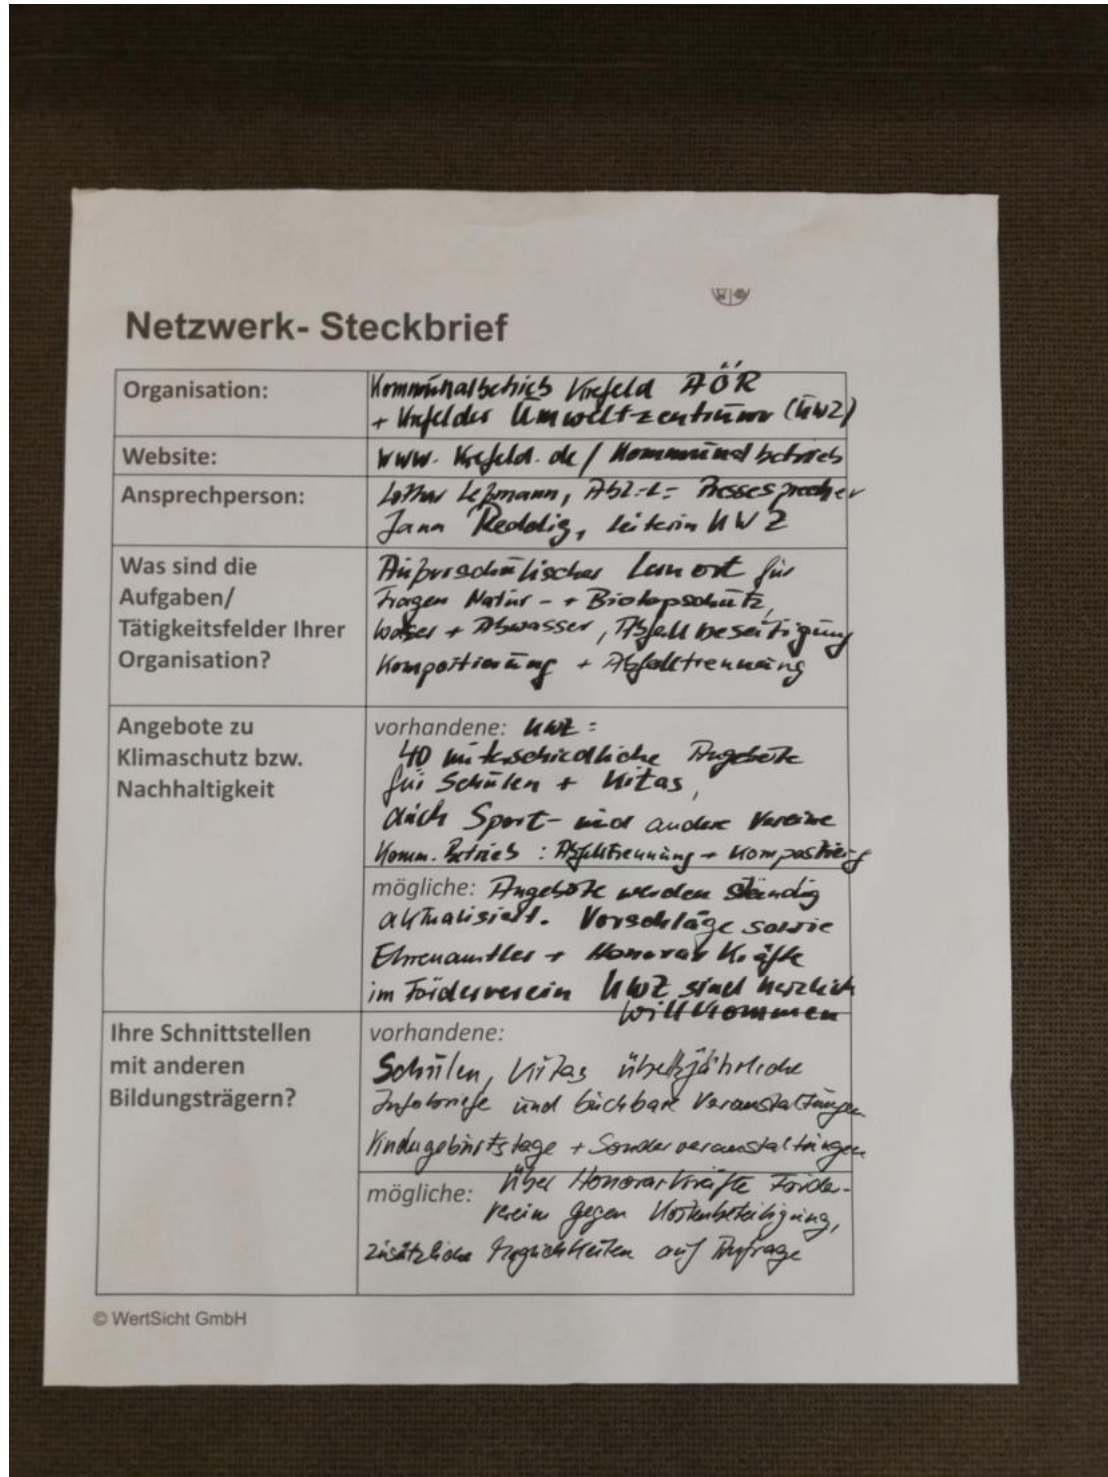 Netzwerk- Steckbrief
Organisation:
Kommunalbetrieb Krefeld AÖR
+ Krefelder Umweltzentrum (UWZ)
Website:
www.krefeld.de/Kommunalbetrieb
Ansprechperson:
Lothar Leßmann, Abt.-L= Pressesprecher
Jana Reddig, Leiterin UWZ
Was sind die
Aufgaben/
Tätigkeitsfelder Ihrer
Organisation?
Außerschulischer Lernort für
Fragen Natur- + Biotopschutz,
Wasser + Abwasser, Abfallbeseitigung
Kompostierung + Abfalltrennung
Angebote zu
Klimaschutz bzw.
Nachhaltigkeit
vorhandene: UWZ =
40 unterschiedliche Angebote
für Schulen + Kitas,
auch Sport- und andere Vereine
Komm. Betrieb : Abfalltrennung + Kompostierg
mögliche: Angebote werden ständig
aktualisiert. Vorschläge sowie
Ehrenamtler + Honorar Kräfte
im Förderverein UWZ sind herzlich
willkommen
Ihre Schnittstellen
mit anderen
Bildungsträgern?
vorhandene:
Schulen, Kitas über jährliche
Infobriefe und buchbare Veranstaltungen
Kindergeburtstage + Sonderveranstaltungen
mögliche: Über Honorarkräfte Förder-
verein gegen Kostenbeteiligung,
zusätzliche Möglichkeiten auf Anfrage
© WertSicht GmbH